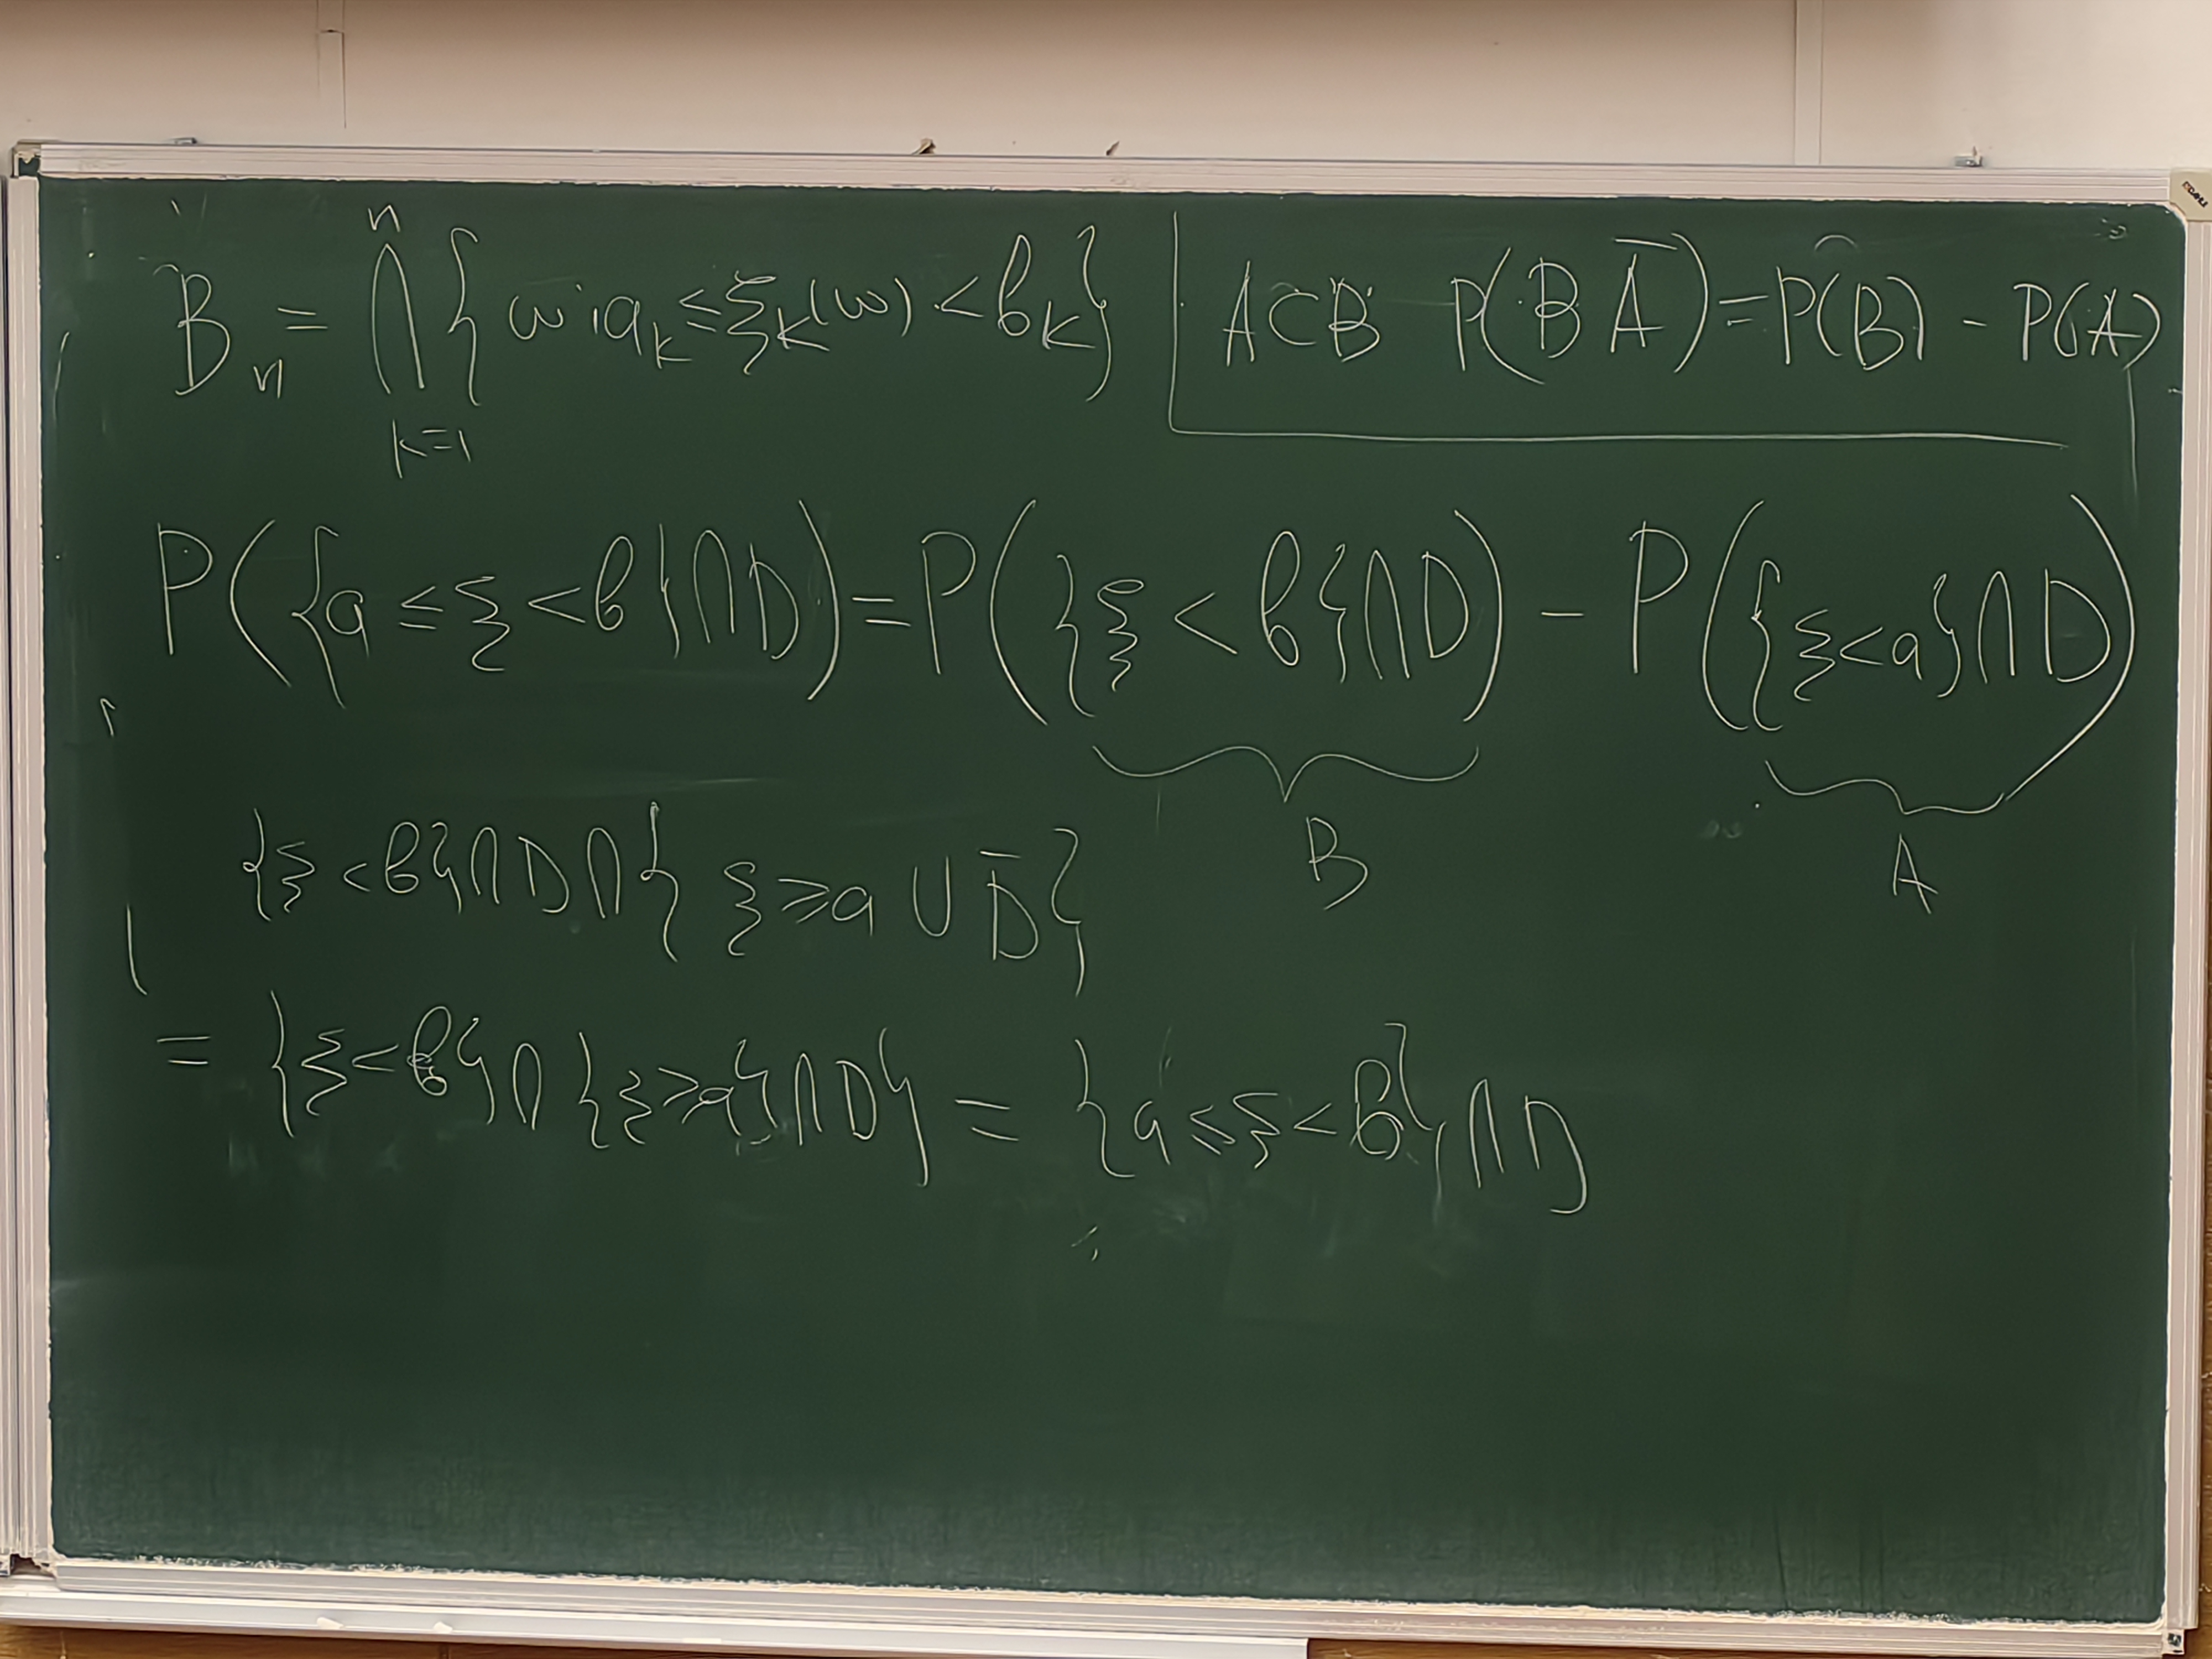 Bₙ = ⋂ₖ₌₁ⁿ {ω: aₖ ≤ ξₖ(ω) < bₖ}
A⊂B P(BA̅) = P(B) - P(A)
P({a ≤ ξ < b}∩D) = P({ξ < b}∩D) - P({ξ < a}∩D)
B A
{ξ < b}∩D∩{ξ ≥ a ∪ D̅}
= {ξ < b}∩{ξ ≥ a}∩D} = {a ≤ ξ < b}∩D